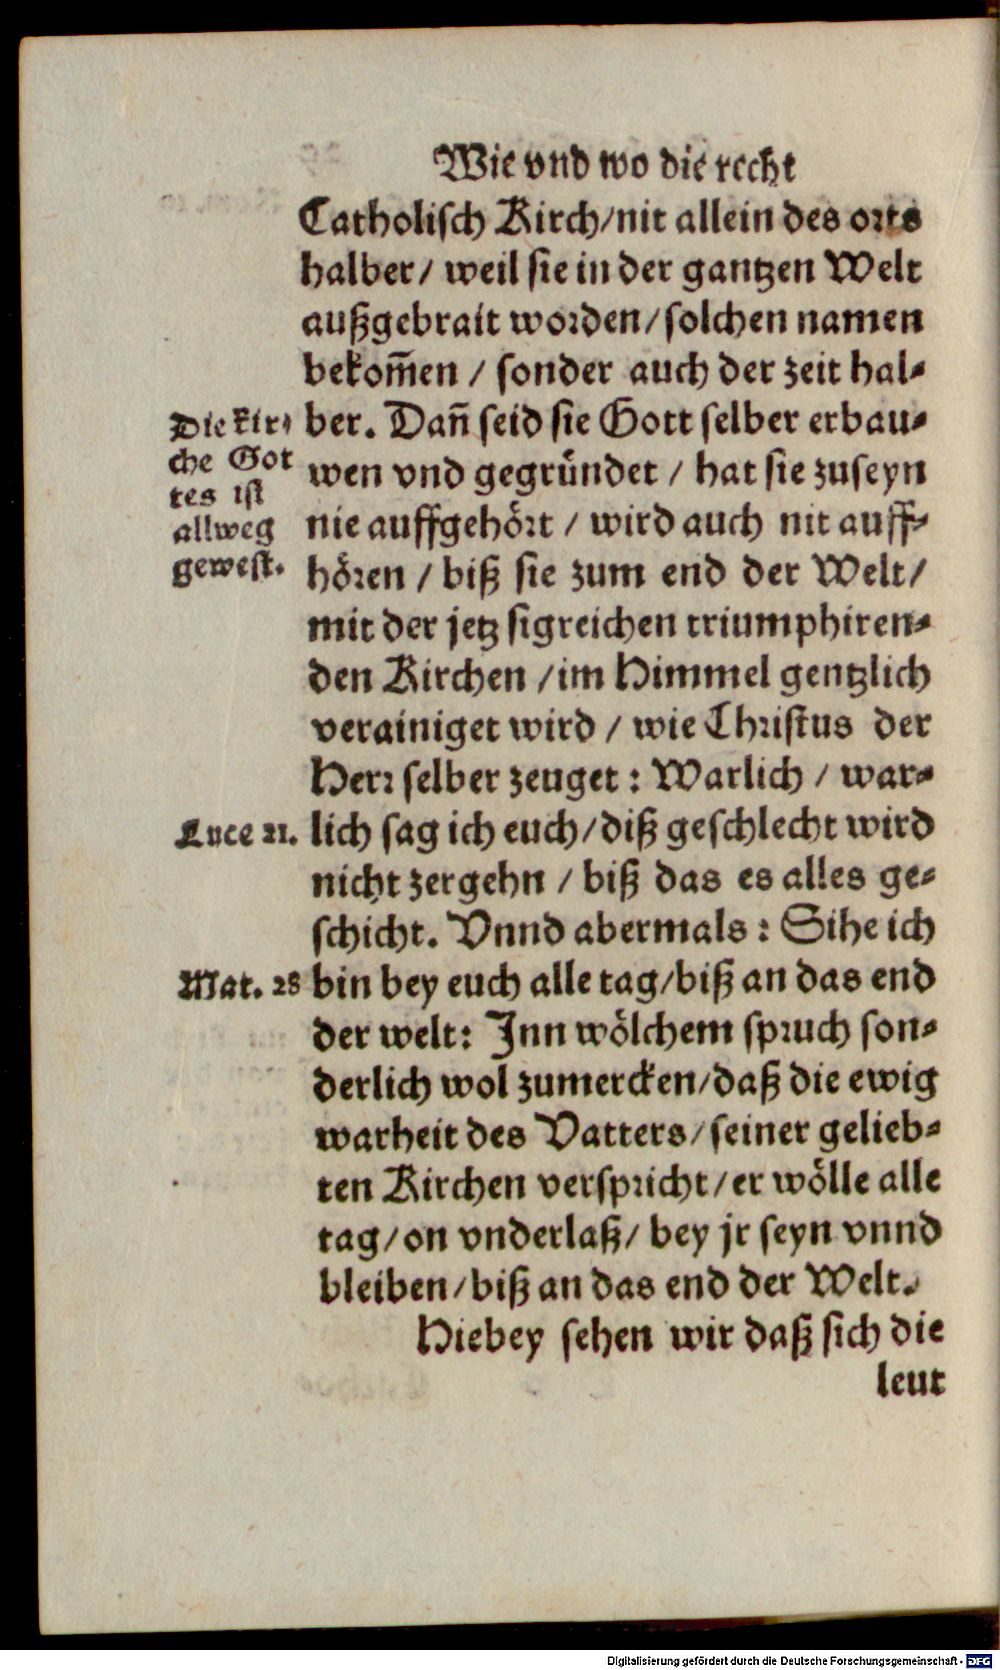 Wie vnd wo die recht
Catholisch Kirch/nit allein des orts
halber/ weil sie in der gantzen Welt
außgebrait worden/solchen namen
bekom̃en / sonder auch der zeit hal-
ber. Dañ seid sie Gott selber erbau-
wen vnd gegründet / hat sie zuseyn
nie auffgehört / wird auch nit auff-
hören / biß sie zum end der Welt/
mit der jetz sigreichen triumphiren-
den Kirchen /im Himmel gentzlich
verainiget wird / wie Christus der
Herr selber zeuget : Warlich / war-
lich sag ich euch/diß geschlecht wird
nicht zergehn / biß das es alles ge-
schicht. Vnnd abermals : Sihe ich
bin bey euch alle tag/biß an das end
der welt: Inn wölchem spruch son-
derlich wol zumercken/daß die ewig
warheit des Vatters/seiner gelieb-
ten Kirchen verspricht/er wölle alle
tag/on vnderlaß/ bey jr seyn vnnd
bleiben/biß an das end der Welt.
Hiebey sehen wir daß sich die
leut
Die kir-
che Got
tes ist
allweg
gewest.
Luce 21.
Mat. 28
Digitalisierung gefördert durch die Deutsche Forschungsgemeinschaft - DFG